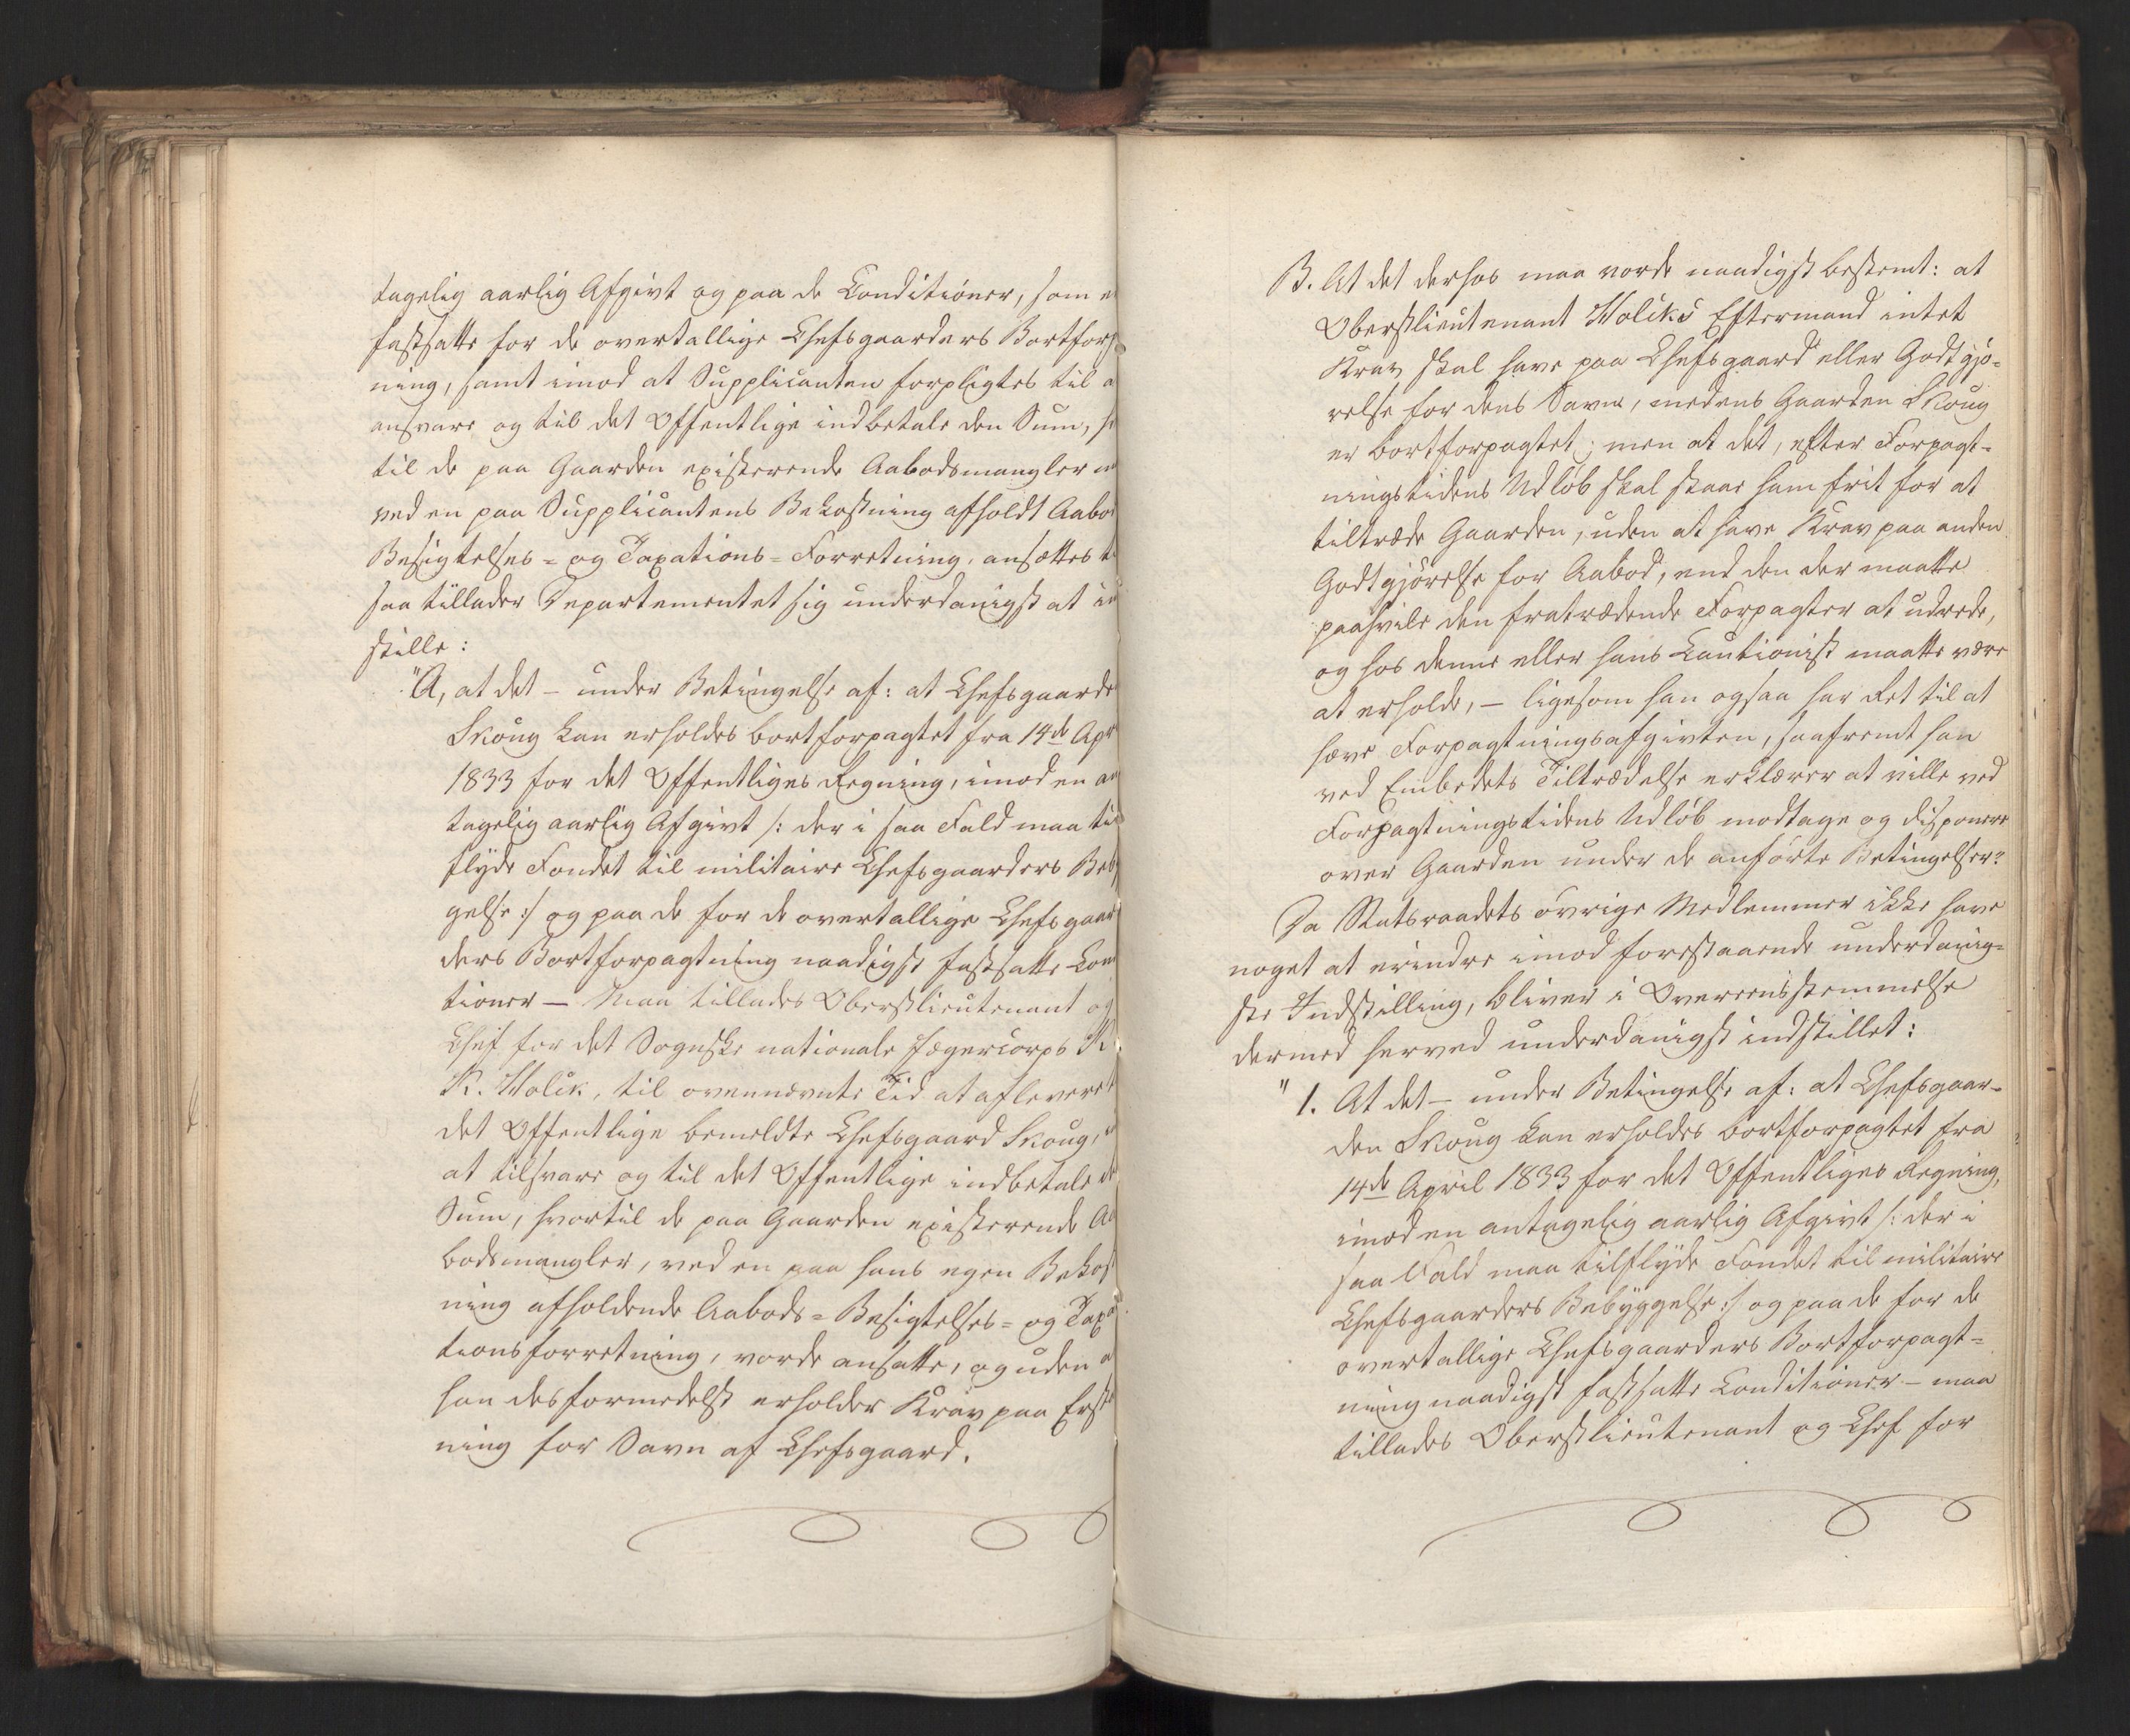 tagelig aarlig Afgivt og paa de Conditioner, som e
fastsatte for de overtallige Chefsgaarders Bortforp
ning, samt imod at Supplicanten forpligtes til a
ansvare og til det Offentlige indbetale den Sum,
til de paa Gaarden existerende Aabodsmangler
ved en paa Supplicantens Bekostning afholdt Aabo
Besigtelses- og Taxations-Forretning, ansættes
saa tillader Departementet sig underdanigst at in
stille:
"A, at det – under Betingelse af: at Chefsgaarde
Skoug kan erholdes bortforpagtet fra 14de Apr
1833 for det Offentliges Regning, imod en an
tagelig aarlig Afgivt /: der i saa Fald maa til
flyde Fondet til militaire Chefsgaarders Beby
gelse :/ og paa de for de overtallige Chefsgaar
ders Bortforpagtning naadigst fastsatte Con
tioner – maa tillades Oberstlieutenant og
Chef for det Sognske nationale Jægercorps
R. Holck, til ovennævnte Tid at aflevere t
det Offentlige bemeldte Chefsgaard Skoug,
at tilsvare og til det Offentlige indbetale d
Sum, hvortil de paa Gaarden existerende Aa
bodsmangler, ved en paa hans egen Bekost
ning afholdende Aabods- Besigtelses- og Taxa
tionsforretning, vorde ansatte, og uden a
han desformedelst erholder Krav paa Erstat
ning for Savn af Chefsgaard.
B. At det derhos maa vorde naadigst bestemt: at
Oberstlieutenant Holcks Eftermand intet
Krav skal have paa Chefsgaard eller Godtgjø-
relse for dens Savn, medens Gaarden Skoug
er bortforpagtet; men at det, efter Forpagt-
ningstidens Udløb skal staae ham frit for at
tiltræde Gaarden, uden at have Krav paa anden
Godtgjørelse for Aabod, end den der maatte
paahvile den fratrædende Forpagter at udrede,
og hos denne eller hans Cautionist maatte være
at erholde, – ligesom han ogsaa har Ret til at
hæve Forpagtningsafgivten, saafremt han
ved Embedets Tiltrædelse erklærer at ville ved
Forpagtningstidens Udløb modtage og disponere
over Gaarden under de anførte Betingelser."
Da Statsraadets øvrige Medlemmer ikke have
noget at erindre imod forestaaende underdanig-
ste Indstilling, bliver i Overeensstemmelse
dermed herved underdanigst indstillet:
" 1. At det – under Betingelse af: at Chefsgaar-
den Skoug kan erholdes bortforpagtet fra
14de April 1833 for det Offentliges Regning,
imod en antagelig aarlig Afgivt /: der i
saa Fald maa tilflyde Fondet til militaire
Chefsgaarders Bebyggelse :/ og paa de for de
overtallige Chefsgaarders Bortforpagt-
ning naadigst fastsatte Conditioner – maa
tillades Oberstlieutenant og Chef for